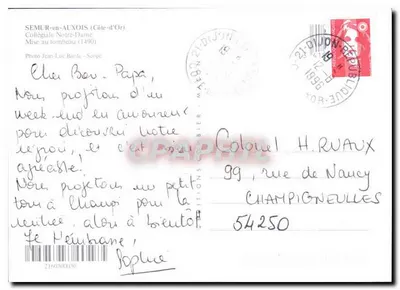 SEMUR-en-AUXOIS (Côte-d'Or)
Collégiale Notre-Dame
Mise au tombeau (1490)
Cher Bon-Papa,
Nous profitons d'un
week-end en amoureux
pour découvrir notre
région, et c'est bien
agréable!
Nous projetons un petit
tour à Champi pour la
rentrée, alors à bientôt
Je t'embrasse,
Sophie
21 DIJON-REPUBLIQUE
21-DIJON
Colonel H. RUAUX
99, rue de Nancy
CHAMPIGNEULLES
54250